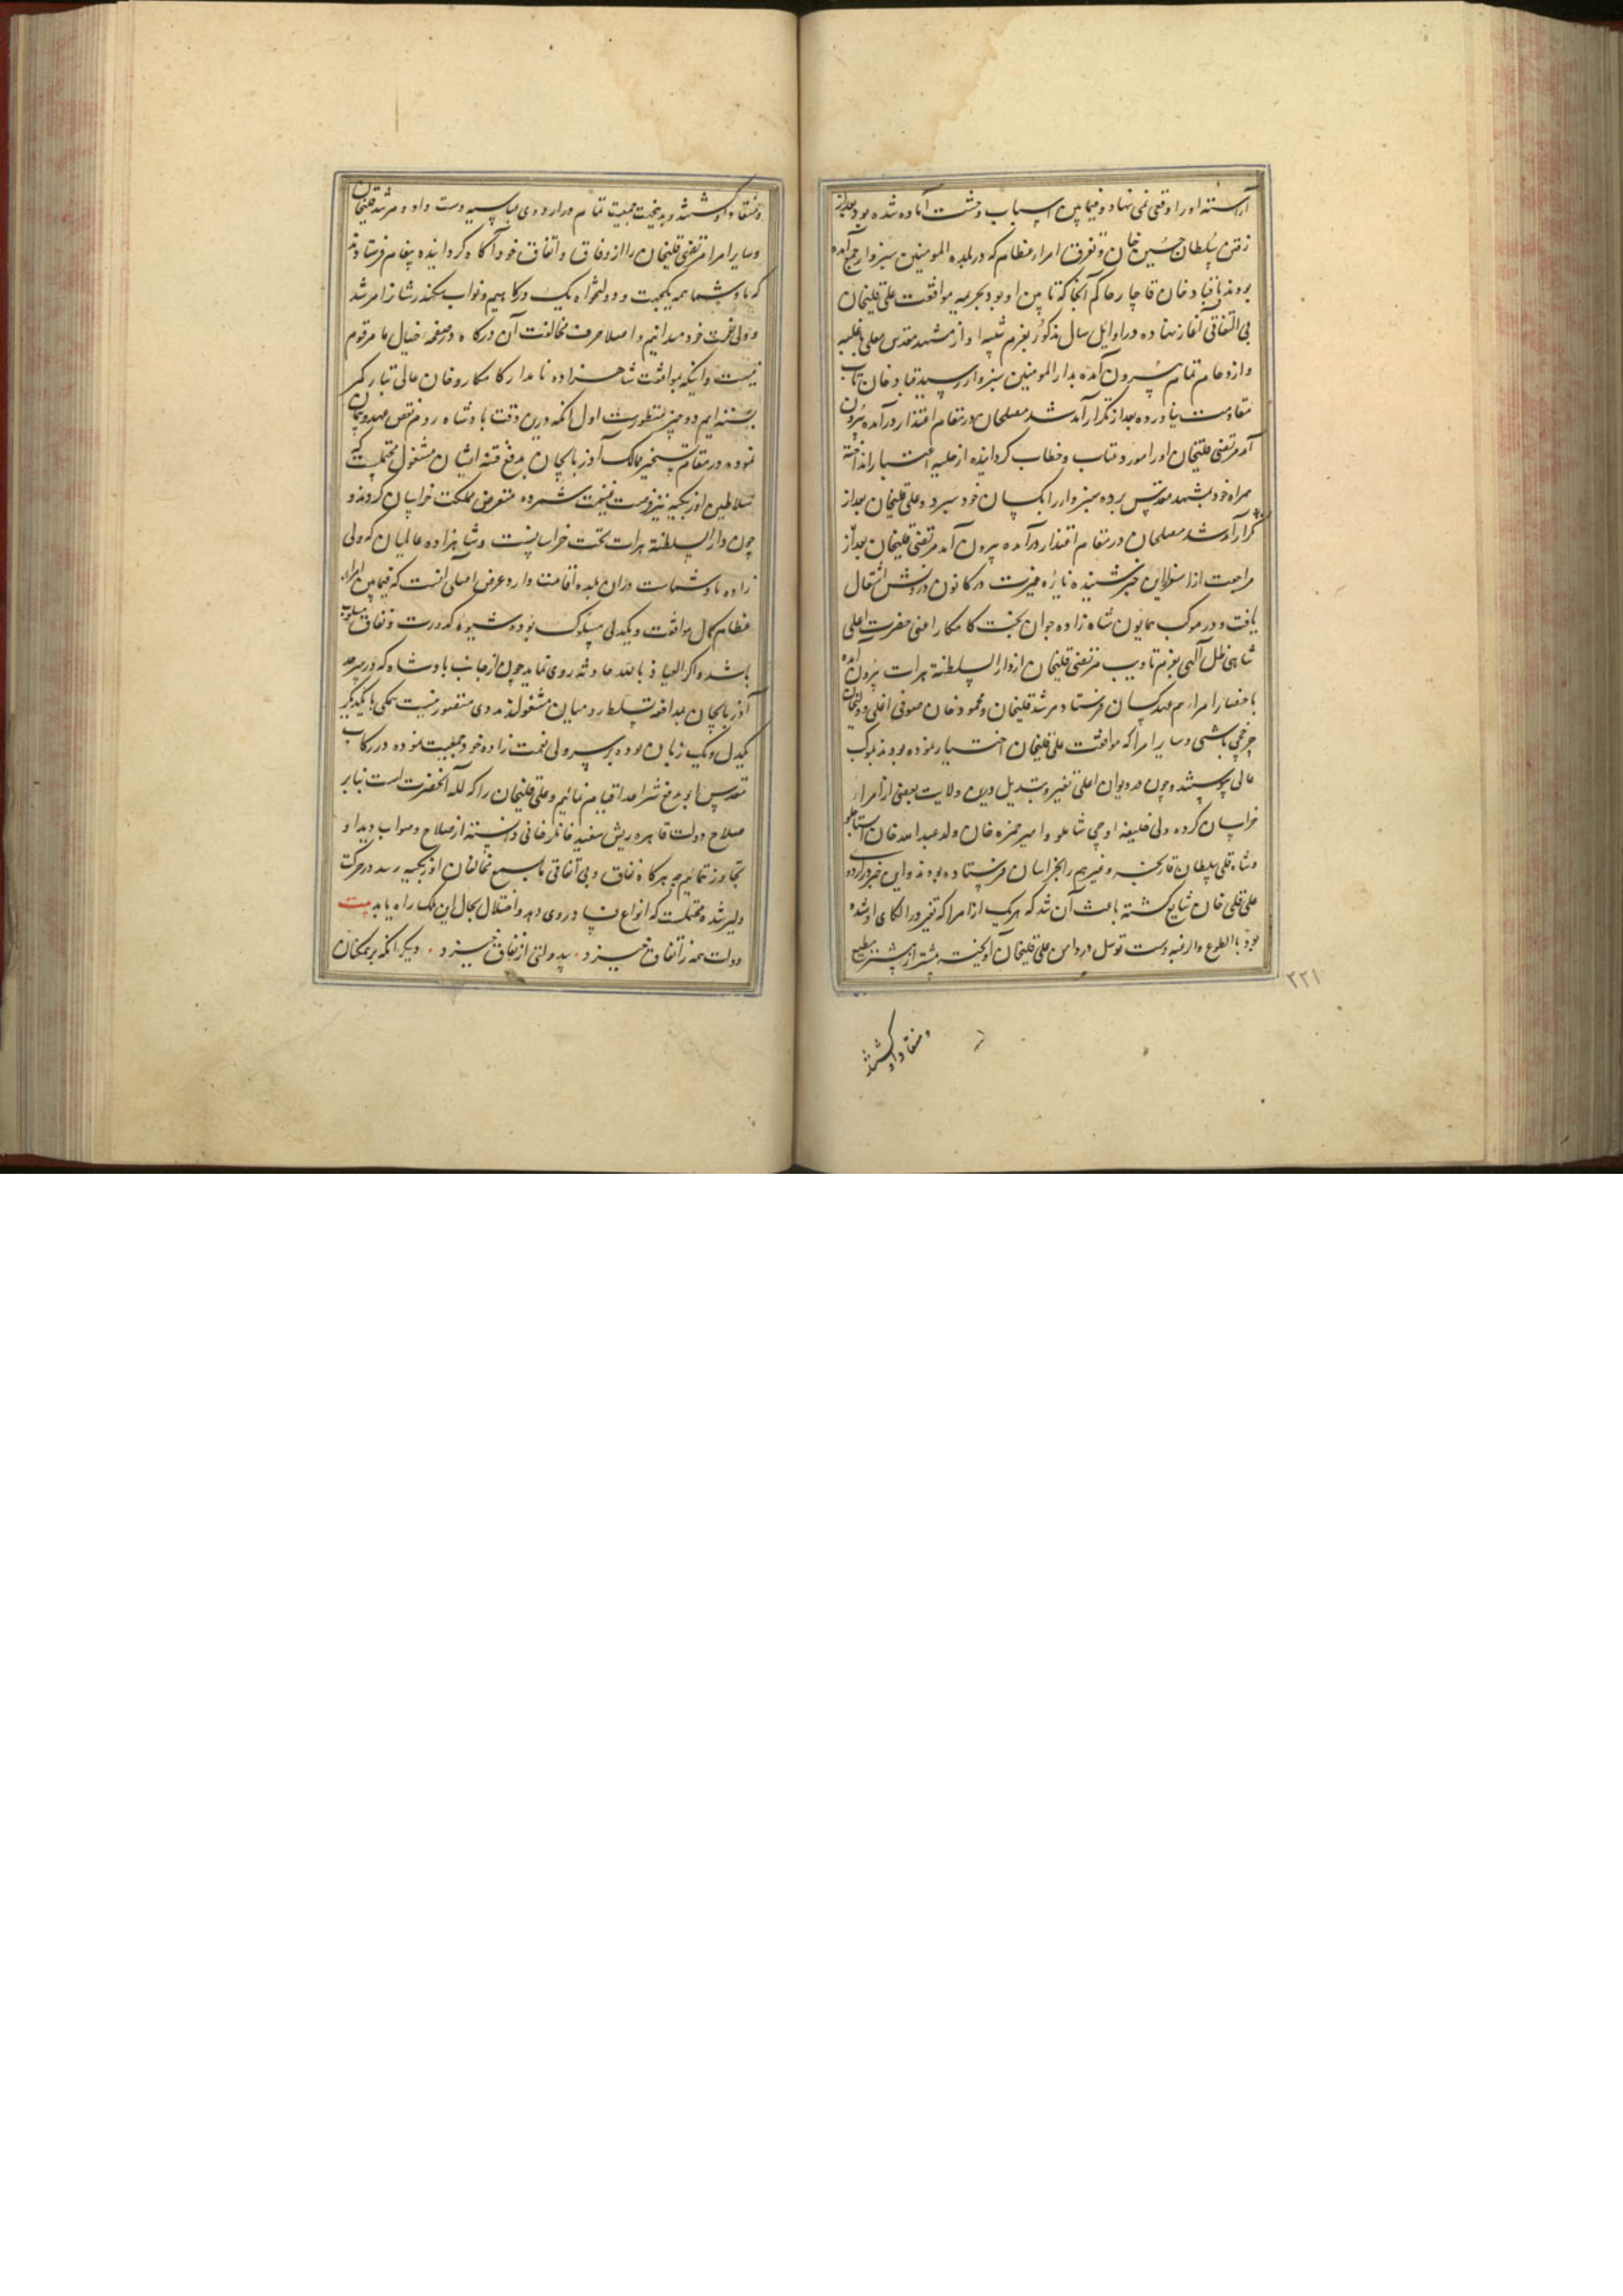 آراسته او را وقعی نمی نهاد و فیمابین اسباب وحشت آماده شده بود بعد از
رفتن سلطان حسین خان و تفرق امراء عظام که در بلده المومنین سبزوار جمع آمده
بودند با قباد خان قاجار حاکم آنجا که تابین او بود بجریمه موافقت علی قلیخان
بی التفاتی آغاز نهاده در اوایل سال مذکور بعزم تنبیه او از مشهد مقدس معلی با غلبه
و ازدحام تمام بیرون آمده بدار المومنین سبزوار رسید قباد خان تاب
مقاومت نیاورده بعد از تکرار آمد شد مصلحان در مقام اعتذار درآمده بیرون
آمد مرتضی قلیخان او را مورد عتاب و خطاب گردانیده از حلیه اعتبار انداخته
همراه خود بمشهد مقدس برده سبزوار را بکسان خود سپرد و علی قلیخان بعد از
تکرار آمد شد مصلحان در مقام اعتذار درآمده بیرون آمد مرتضی قلیخان بعد از
مراجعت از اسفراین خبر شنیده نایره غیرت در کانون درونش اشتعال
یافت و در موکب همایون شاه زاده جوان بخت کامکار اعنی حضرت اعلی
شاهی ظل آلهی بعزم تادیب مرتضی قلیخان از دار السلطنه هرات بیرون آمده
باحضار امراء هم عهد کسان فرستاد مرشد قلیخان و محمود خان صوفی اغلی و ولیخان
چرخچی باشی و سایر امرا که موافقت علی قلیخان اختیار نموده بودند بموکب
عالی پیوستند و چون در دیوان اعلی تغیر و تبدیل در ولایت بعضی از امراء
خراسان کرده ولی خلیفه اوجی شاملو و امیر حمزه خان ولد عبدالله خان استاجلو
و شاه قلی سلطان قارنجه و غیرهم را بخراسان فرستاده بودند و این خبر در اردوی
علی قلی خان شایع گشته باعث آن شد که هر یک از امرا که تغیر در الکای او شده
بود بالطوع والرغبه دست توسل در دامن علی قلیخان آویخته بیشتر از پیشتر مطیع
۲۲۱
و منقاد او گشتند
و منقاد او گشتند و بدینجهت جمعیت تمام در اردوی عباسیه دست داد و مرشد قلیخان
و سایر امرا مرتضی قلیخان را از وفاق و اتفاق خود آگاه گردانیده پیغام فرستادند
که ما و شما همه یکجهت و دولتخواه یک درگاهیم و نواب سکندر شان را مرشد
و ولی نعمت خود میدانیم و اصلا حرف مخالفت آن درگاه در صفحه خیال ما مرقوم
نیست و اینکه بموافقت شاهزاده نامدار کامکار و خان عالی تبار کمر
بسته ایم دو چیز منظورست اول آنکه درین وقت پادشاه روم نقض عهد و پیمان
نموده در مقام تسخیر ممالک آذربایجان بدفع فتنه ایشان مشغول محتملست که
سلاطین اوزبکیه نیز فرصت غنیمت شمرده متعرض مملکت خراسان گردند و
چون دار السلطنه هرات تخت خراسانست و شاهزاده عالمیان که ولی
زاده ما و شماست در آن بلده اقامت دارد غرض اصلی آنست که فیمابین امراء
عظام کمال موافقت و یکدلی مسلوک بوده شیوه کدورت و نفاق مسلوب
باشد و اگر العیاذ بالله حادثه روی نماید چون از جانب پادشاه که در سرحد
آذربایجان بمدافعه تسلط رومیان مشغولند مددی متصور نیست همگی با یکدیگر
یکدل و یک زبان بوده بر سر ولی نعمت زاده خود جمعیت نموده در رکاب
مقدس او بدفع شر اعدا قیام نمائیم و علی قلیخان را که لله آنحضرت است بنابر
صلاح دولت قاهره ریش سفید خانلر خانی دانسته از صلاح و صواب دید او
تجاوز ننمائیم چه هرگاه نفاق و بی اتفاقی ما بسمع مخالفان اوزبکیه رسد در حرکت
دلیر شده محتملست که انواع فساد روی دهد و اختلال بحال این ملک راه یابد بیت
دولت همه ز اتفاق خیزد . بیدولتی از نفاق خیزد . دیگر آنکه بر همکنان